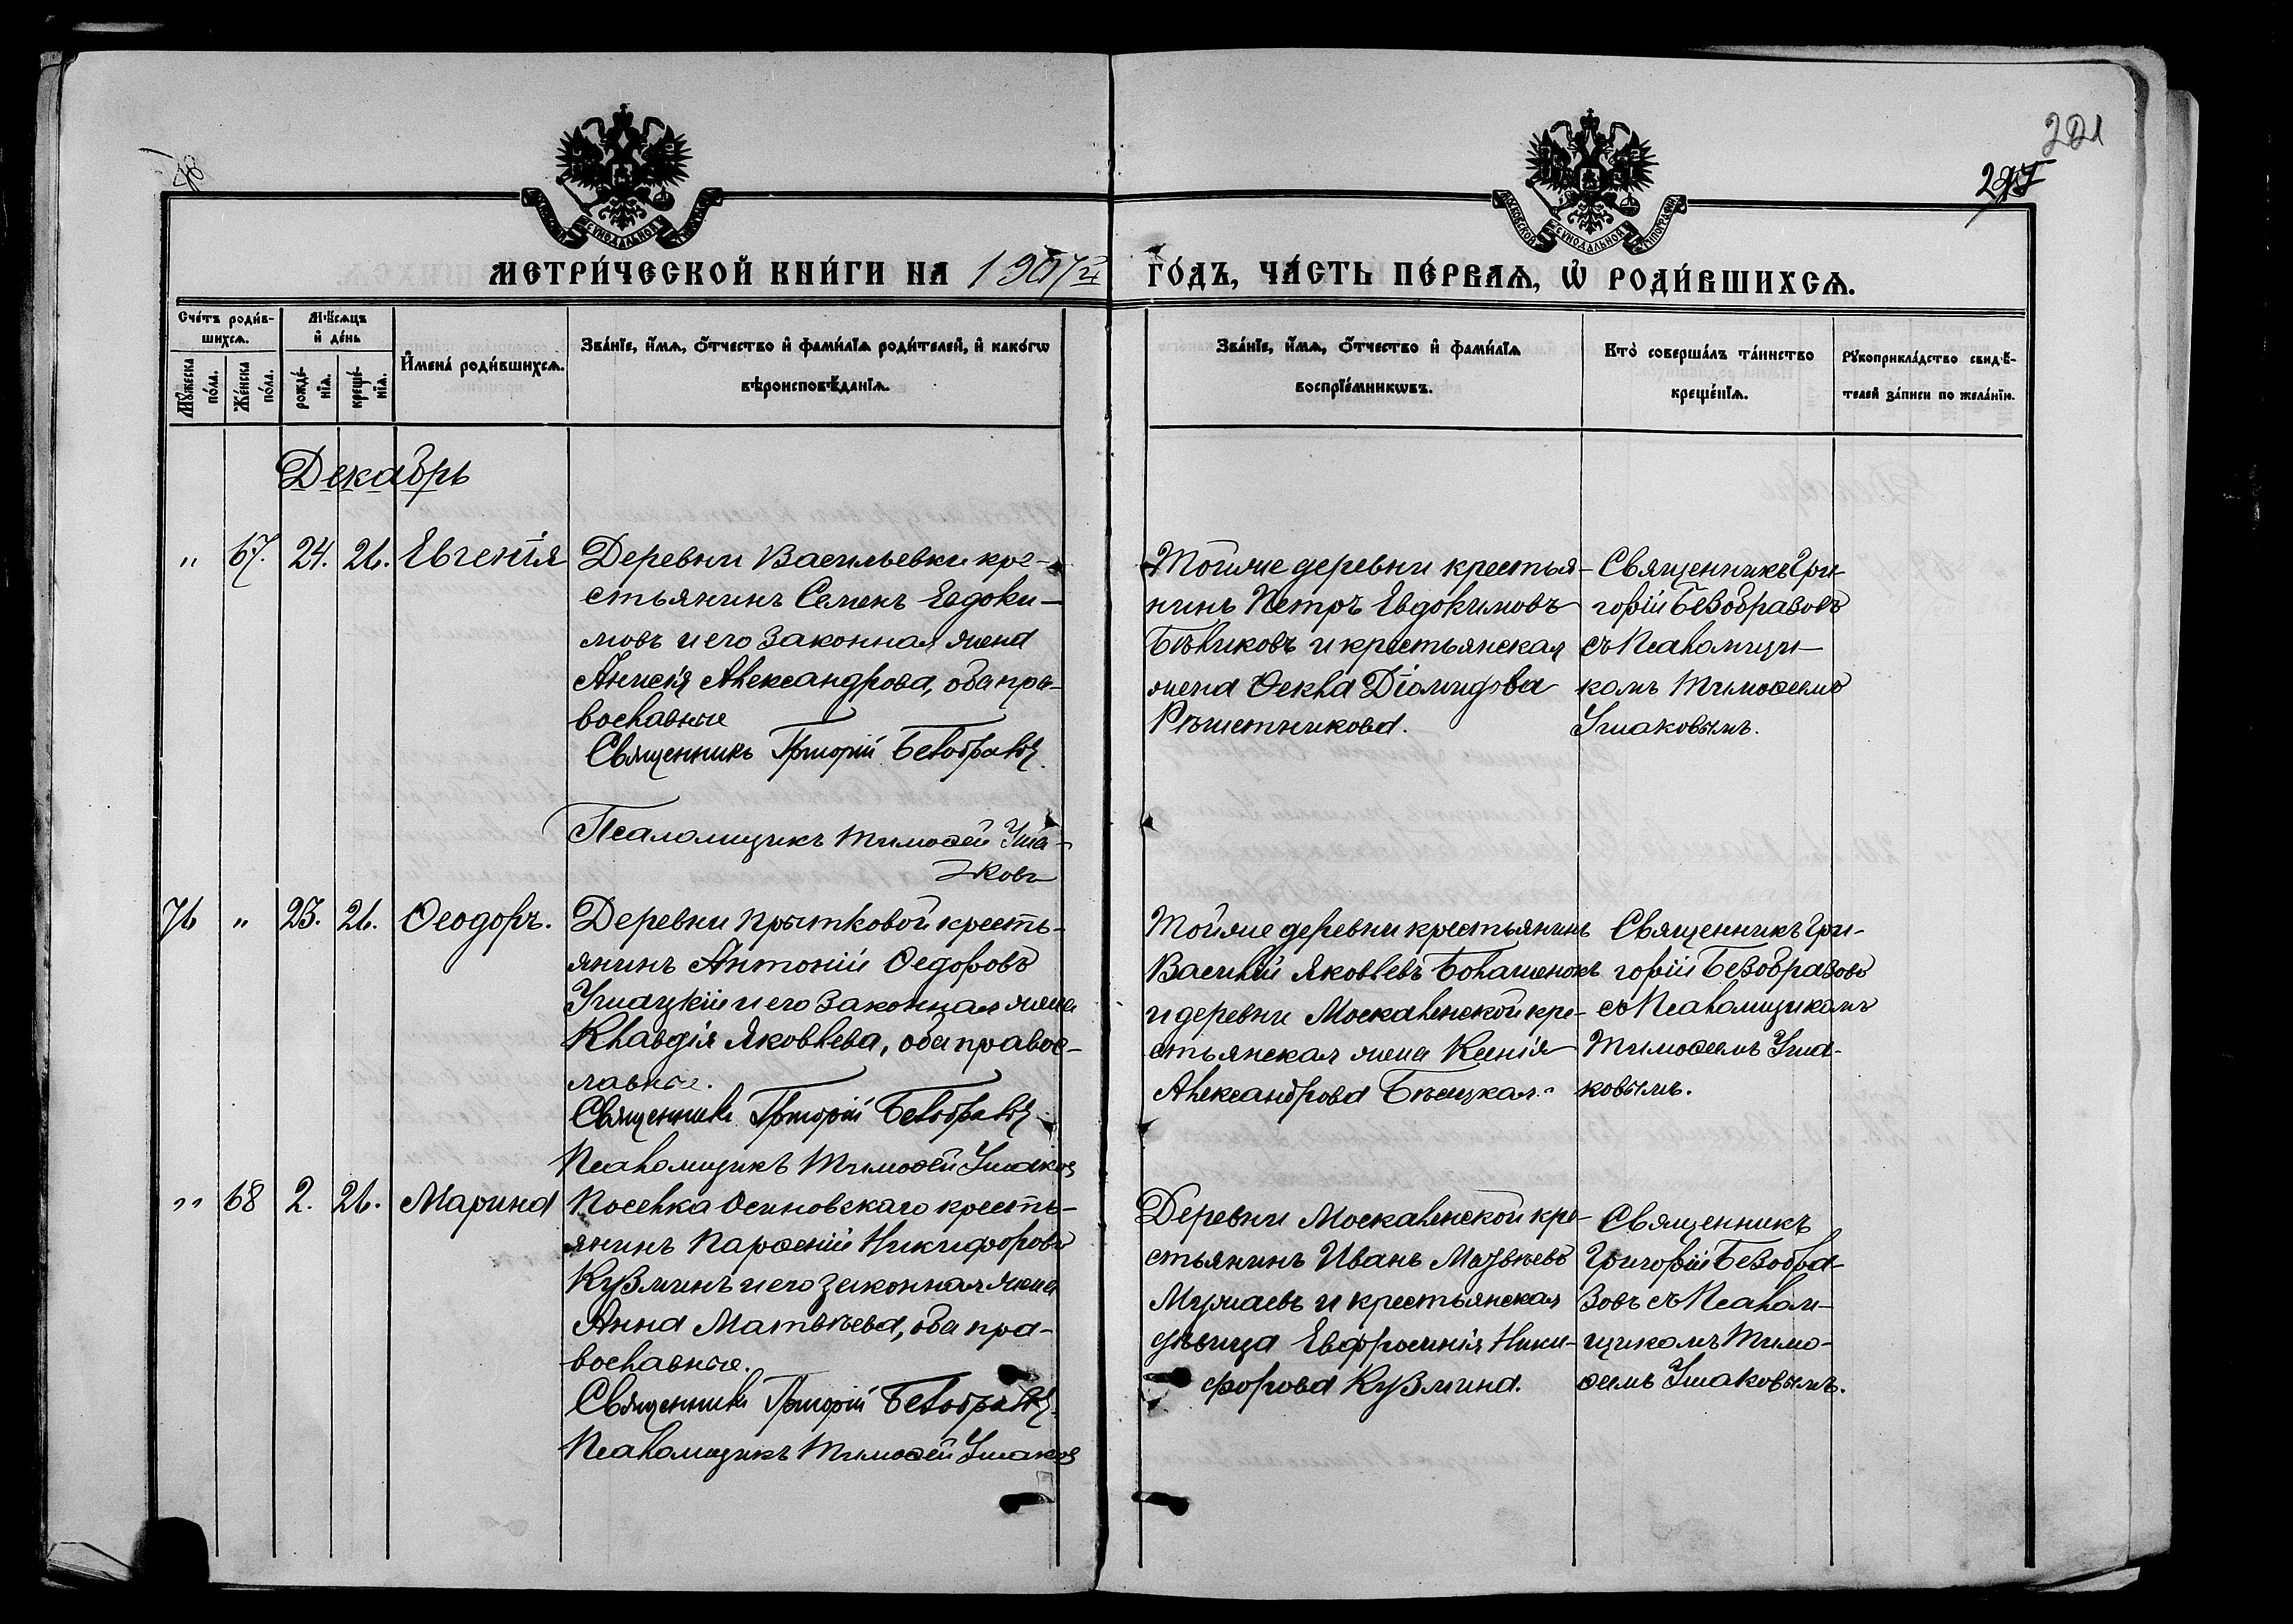 201
МОСКОВСКОЙ СУНОДАЛЬНОЙ ТИПОГРАФІИ
МОСКОВСКОЙ СУНОДАЛЬНОЙ ТИПОГРАФІИ
МЕТРИ́ЧЕСКОЙ КНИ́ГИ НА 1907й ГО́ДЪ, ЧА́СТЬ ПЕ́РВАѦ, Ѡ҆ РОДИ́ВШИХСѦ.
Сче́тъ роди́в-
шихсѧ.
Мꙋ́жеска по́ла.
Же́нска по́ла.
Мѣ́сѧцъ
и҆ де́нь
рожде́-
нїѧ.
креще́-
нїѧ.
И҆мена̀ роди́вшихсѧ.
Зва́нїе, и҆́мѧ, ѻ҆́тчество и҆ фами́лїѧ роди́телей, и҆ како́гѡ
вѣроисповѣ́данїѧ.
Зва́нїе, и҆́мѧ, ѻ҆́тчество и҆ фами́лїѧ
воспрїе́мникѡвъ.
Кто̀ соверша́лъ та́инство
креще́нїѧ.
Рꙋкоприкла́дство свидѣ́-
телей за́писи по жела́нїю.
Декабрь
" 67. 24. 26. Евгенія
Деревни Васильевки кре-
стьянинъ Семенъ Евдоки-
мовъ и его законная жена
Анисія Александрова, оба пра-
вославные
Священникъ Григорій Безобразовъ
Псаломщикъ Тимоѳей Уша-
ковъ
Тойже деревни крестья-
нинъ Петръ Евдокимовъ
Бѣликовъ и крестьянская
жена Ѳекла Діомидова
Рѣшетникова.
Священникъ Гри-
горій Безобразовъ
съ Псаломщи-
комъ Тимоѳемъ
Ушаковымъ.
76 " 25. 26. Ѳеодоръ.
Деревни Прытковой кресть-
янинъ Антоній Ѳедоровъ
Ушацкій и его законная жена
Клавдія Яковлева, оба правос-
лавные.
Священникъ Григорій Безобразовъ
Псаломщикъ Тимоѳей Ушаковъ
Тойже деревни крестьянинъ
Василій Яковлевъ
и деревни Москаленской кре-
стьянская жена Ксенія
Александрова
Священникъ Гри-
горій Безобразовъ
съ Псаломщикомъ
Тимоѳемъ Уша-
ковымъ.
" 68 2. 26. Марина
Поселка Осиновскаго кресть-
янинъ Парѳеній Никифоровъ
Кузминъ и его законная жена
Анна Матвѣева, оба пра-
вославные.
Священникъ Григорій Безобразовъ
Псаломщикъ Тимоѳей Ушаковъ
Деревни Москаленской кре-
стьянинъ Иванъ
и крестьянская
дѣвица Евфросинія Ники-
форова Кузмина.
Священникъ
Григорій Безобра-
зовъ съ Псалом-
щикомъ Тимо-
ѳемъ Ушаковымъ.